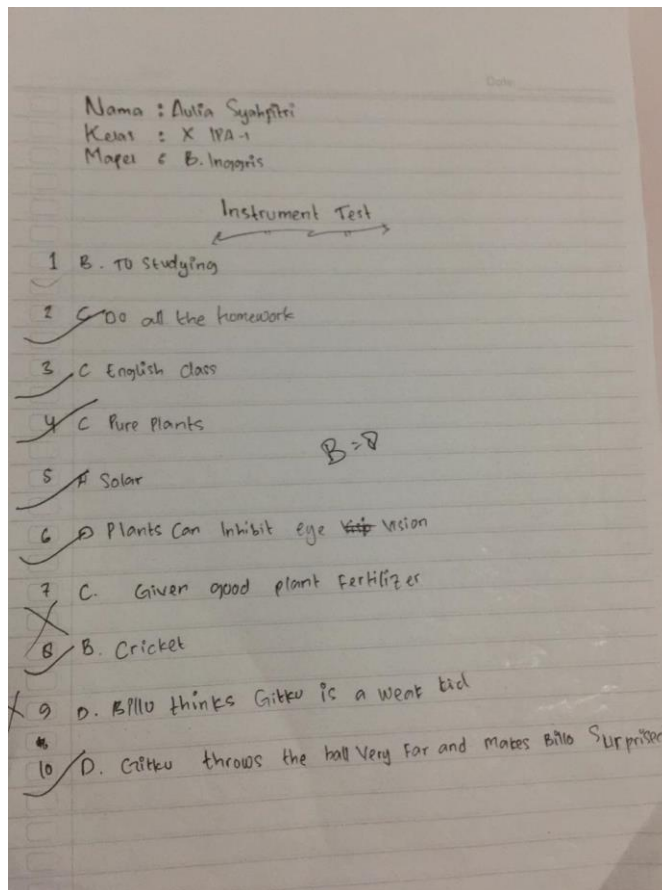 Date
Nama : Aulia Syahpitri
Kelas : X IPA-1
Mapel : B. Inggris
Instrument Test
1 B. To Studying
2 C Do all the homework
3 C English class
4 C Pure Plants
B=8
5 A Solar
6 D Plants Can Inhibit eye vision
7 C. Given good plant Fertilizer
8 B. Cricket
9 D. Billu thinks Gitku is a weak kid
10 D. Gitku throws the ball Very Far and makes Billo Surprised